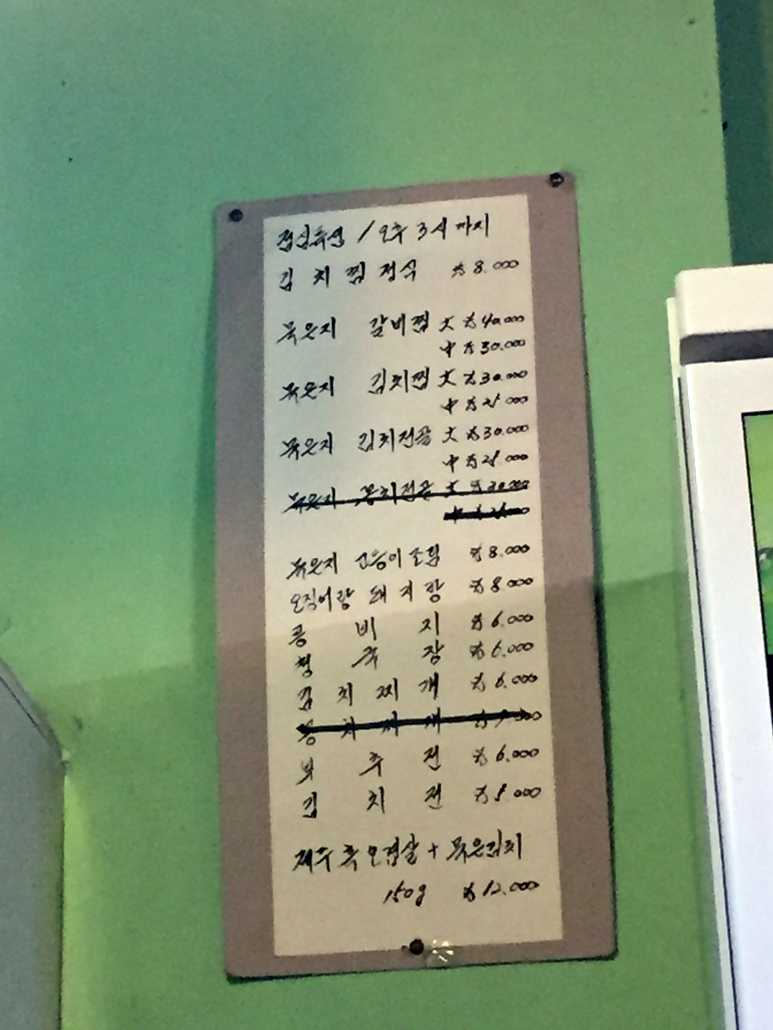 점심특선 / 오후 3시 까지
김치찜정식 ₩8.000
묵은지 갈비찜 大 ₩40.000
中 ₩30.000
묵은지 김치찜 大 ₩30.000
中 ₩25.000
묵은지 김치전골 大 ₩30.000
中 ₩25.000
묵은지 꽁치전골 大 ₩30.000
中
묵은지 고등어 조림 ₩8.000
오징어랑 돼지랑 ₩8.000
콩비지 ₩6.000
청국장 ₩6.000
김치찌개 ₩6.000
부추전 ₩6.000
김치전
제주 흑오겹살 + 묵은김치
150g ₩12.000